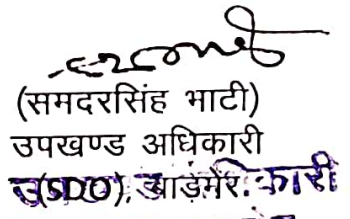 (समदरसिंह भाटी)
उपखण्ड अधिकारी
(SDO), बाड़मेर